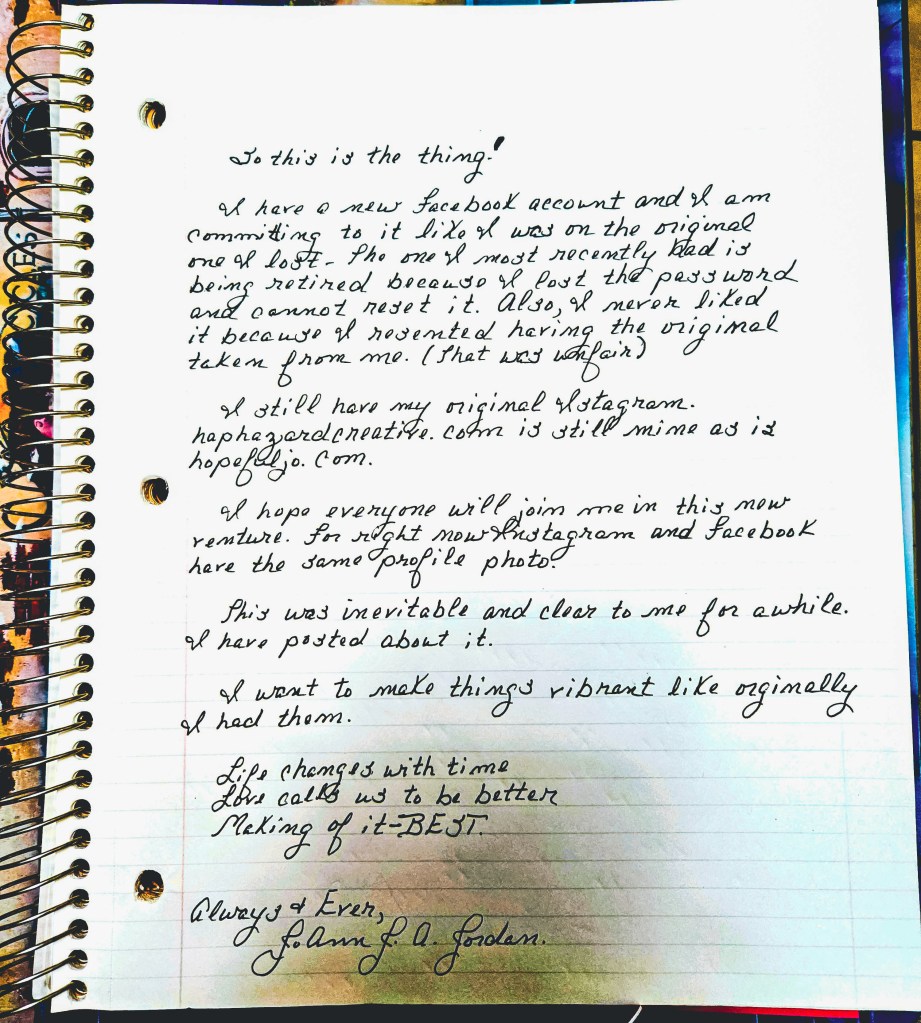 So this is the thing!
I have a new Facebook account and I am
committing to it like I was on the original
one I lost. The one I most recently had is
being retired because I lost the password
and cannot reset it. Also, I never liked
it because I resented having the original
taken from me. (That was unfair)
I still have my original Istagram.
haphazardcreative.com is still mine as is
hopefuljo.com.
I hope everyone will join me in this new
venture. For right now Instagram and Facebook
have the same profile photo.
This was inevitable and clear to me for awhile.
I have posted about it.
I want to make things vibrant like orginally
I had them.
Life changes with time
Love calls us to be better
Making of it-BEST.
Always & Ever,
JoAnn J. A. Jordan.